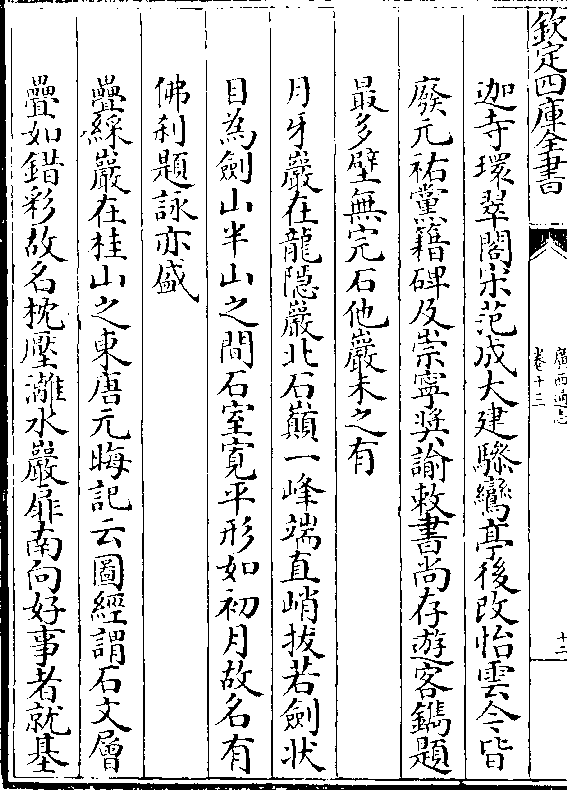 欽定四庫全書
廣西通志
卷十三
十二
迦寺環翠閣宋范成大建驂鸞亭後改怡雲今皆
廢元祐黨籍碑及崇寧奬諭敕書尚存遊客鐫題
最多壁無完石他巖未之有
月牙巖在龍隱巖北石巔一峰端直峭拔若劍狀
目為劍山半山之間石室寛平形如初月故名有
佛刹題詠亦盛
疊綵巖在桂山之東唐元晦記云圖經謂石文層
疊如錯彩故名枕壓灕水巖扉南向好事者就基